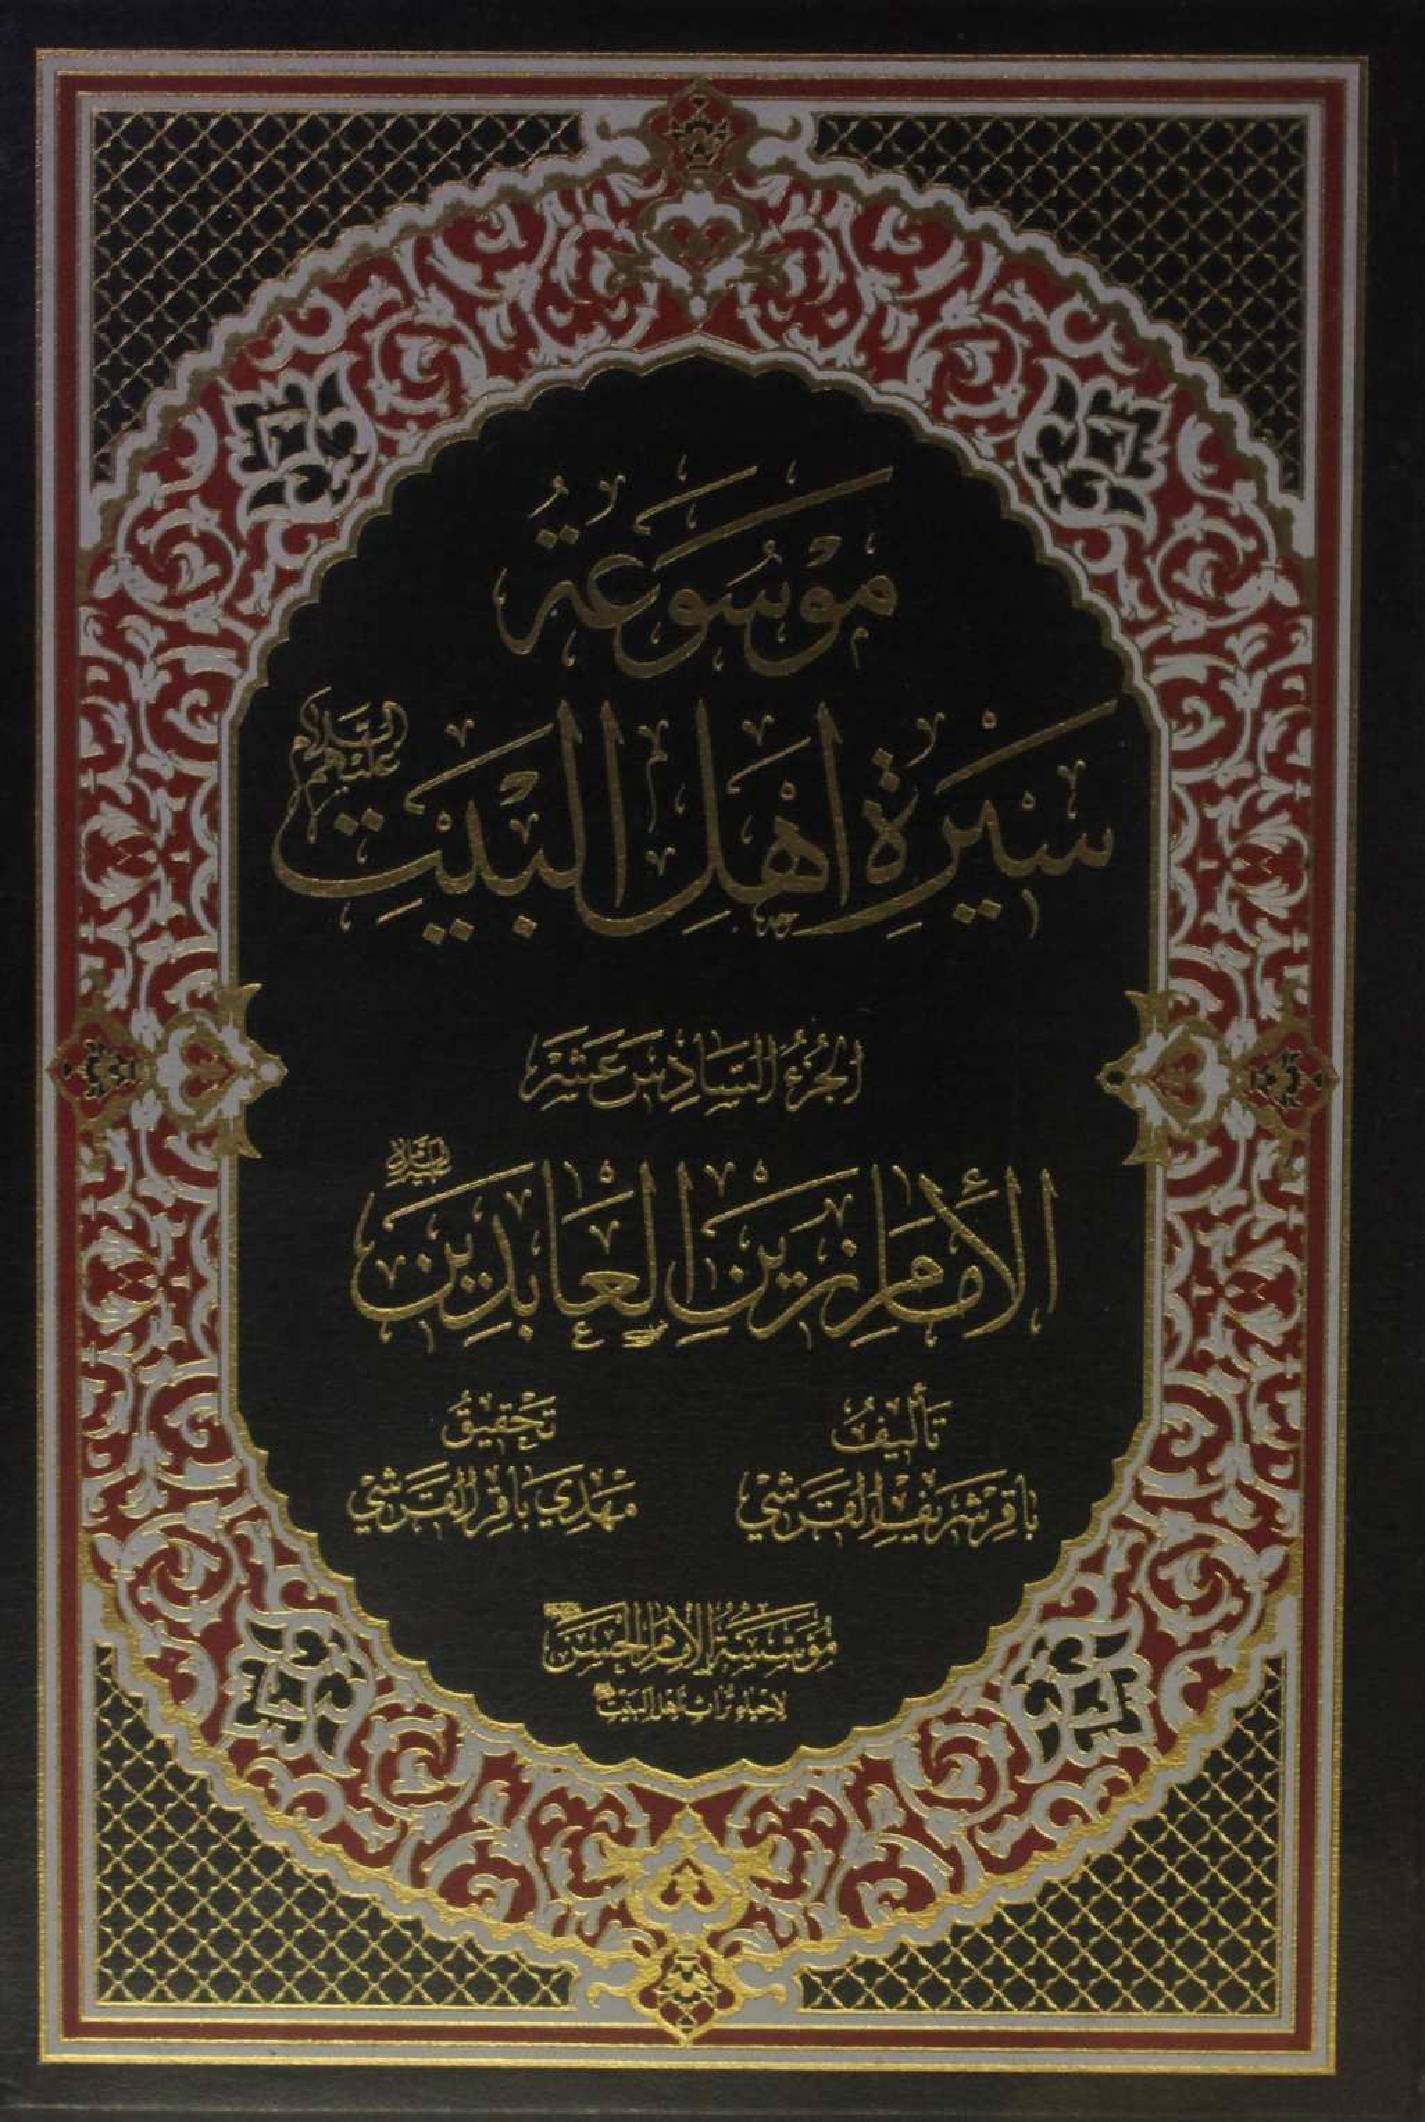 مَوْسُوعَةُ
سِيرَةِ أَهْلِ الْبَيْتِ عَلَيْهِمُ السَّلَام
الجُزْءُ السَّادِسَ عَشَرَ
الْإِمَامُ زَيْنُ الْعَابِدِينَ
تَأْلِيفُ
بَاقِر شَرِيف الْقَرَشِي
تَحْقِيقُ
مَهْدِي بَاقِر الْقَرَشِي
مُؤَسَّسَةُ الْإِمَامِ الْحَسَنِ
لِإِحْيَاءِ تُرَاثِ أَهْلِ الْبَيْتِ